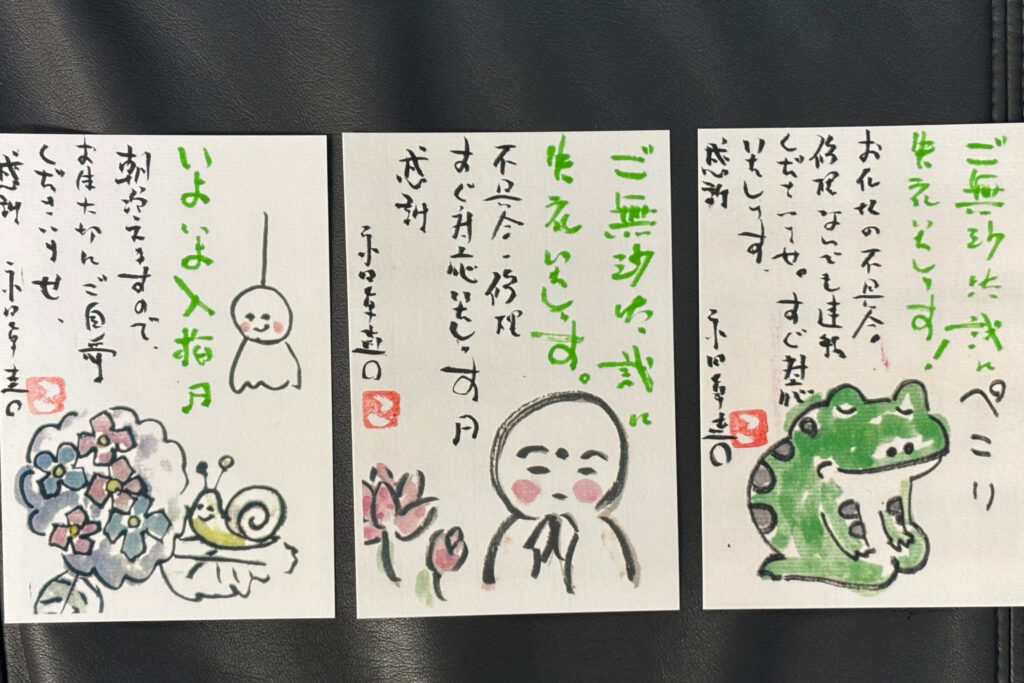 いよいよ入梅月
ますので、
お体大切にご自愛
くださいませ、
感謝
ご無沙汰誠に
失礼いたします。
不具合・修理
すぐ対応いたします
感謝
ご無沙汰誠に
失礼いたします!
ぺこり
お仏壇の不具合。
修理なんでも連絡
くださいませ。すぐ対応
いたします。
感謝